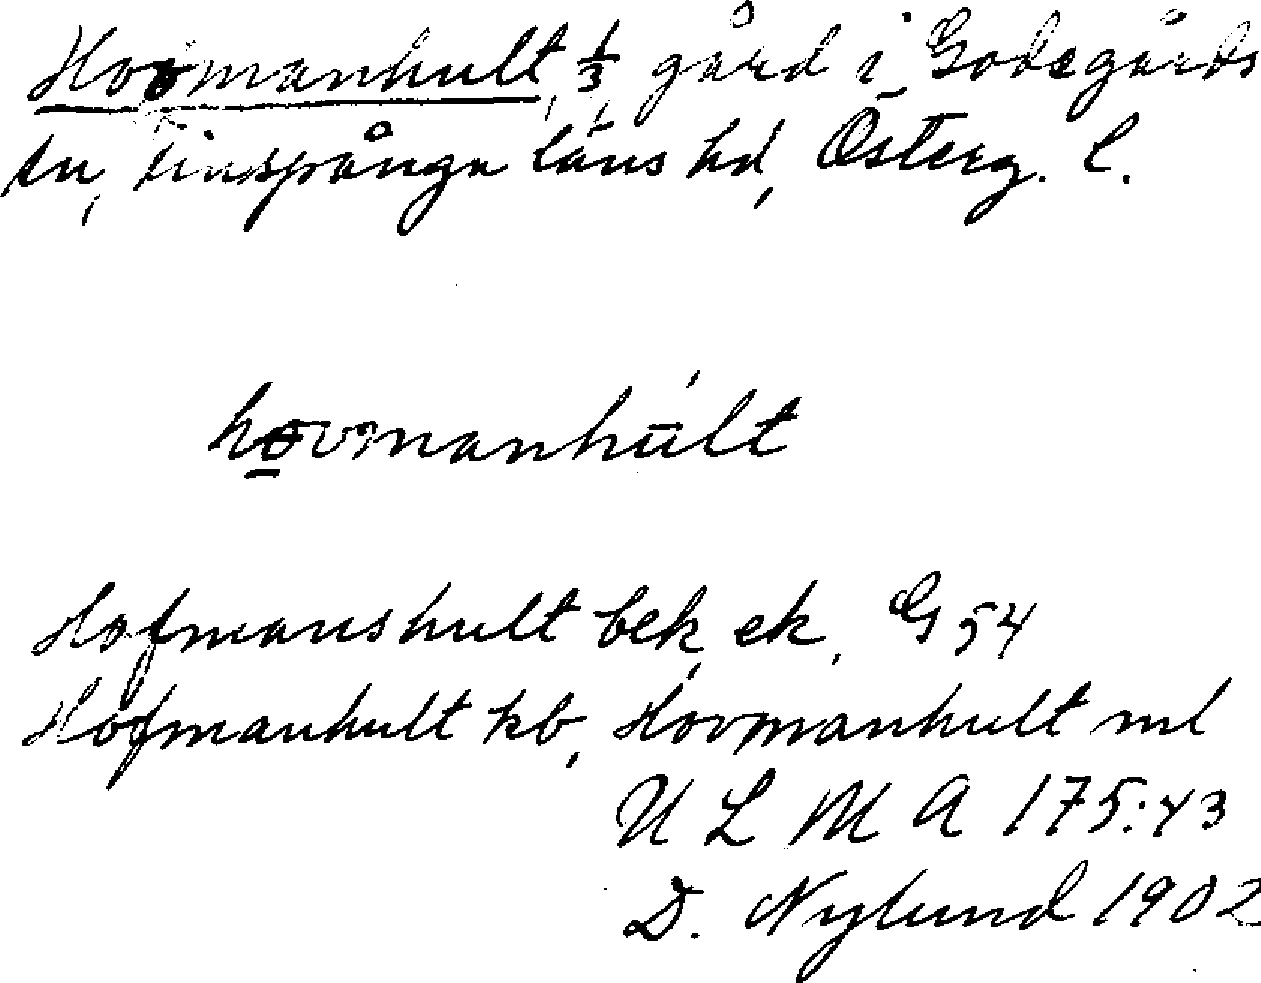 Hovmanhult, 1/3, gård i Godegårds
sn, Finspånga läns hd, Österg. l.
hovmanhult
Hofmanshult bek, ek, G 54
Hofmanhult kb, Hovmanhult ml
ULMA 175:43
D. Nylund 1902